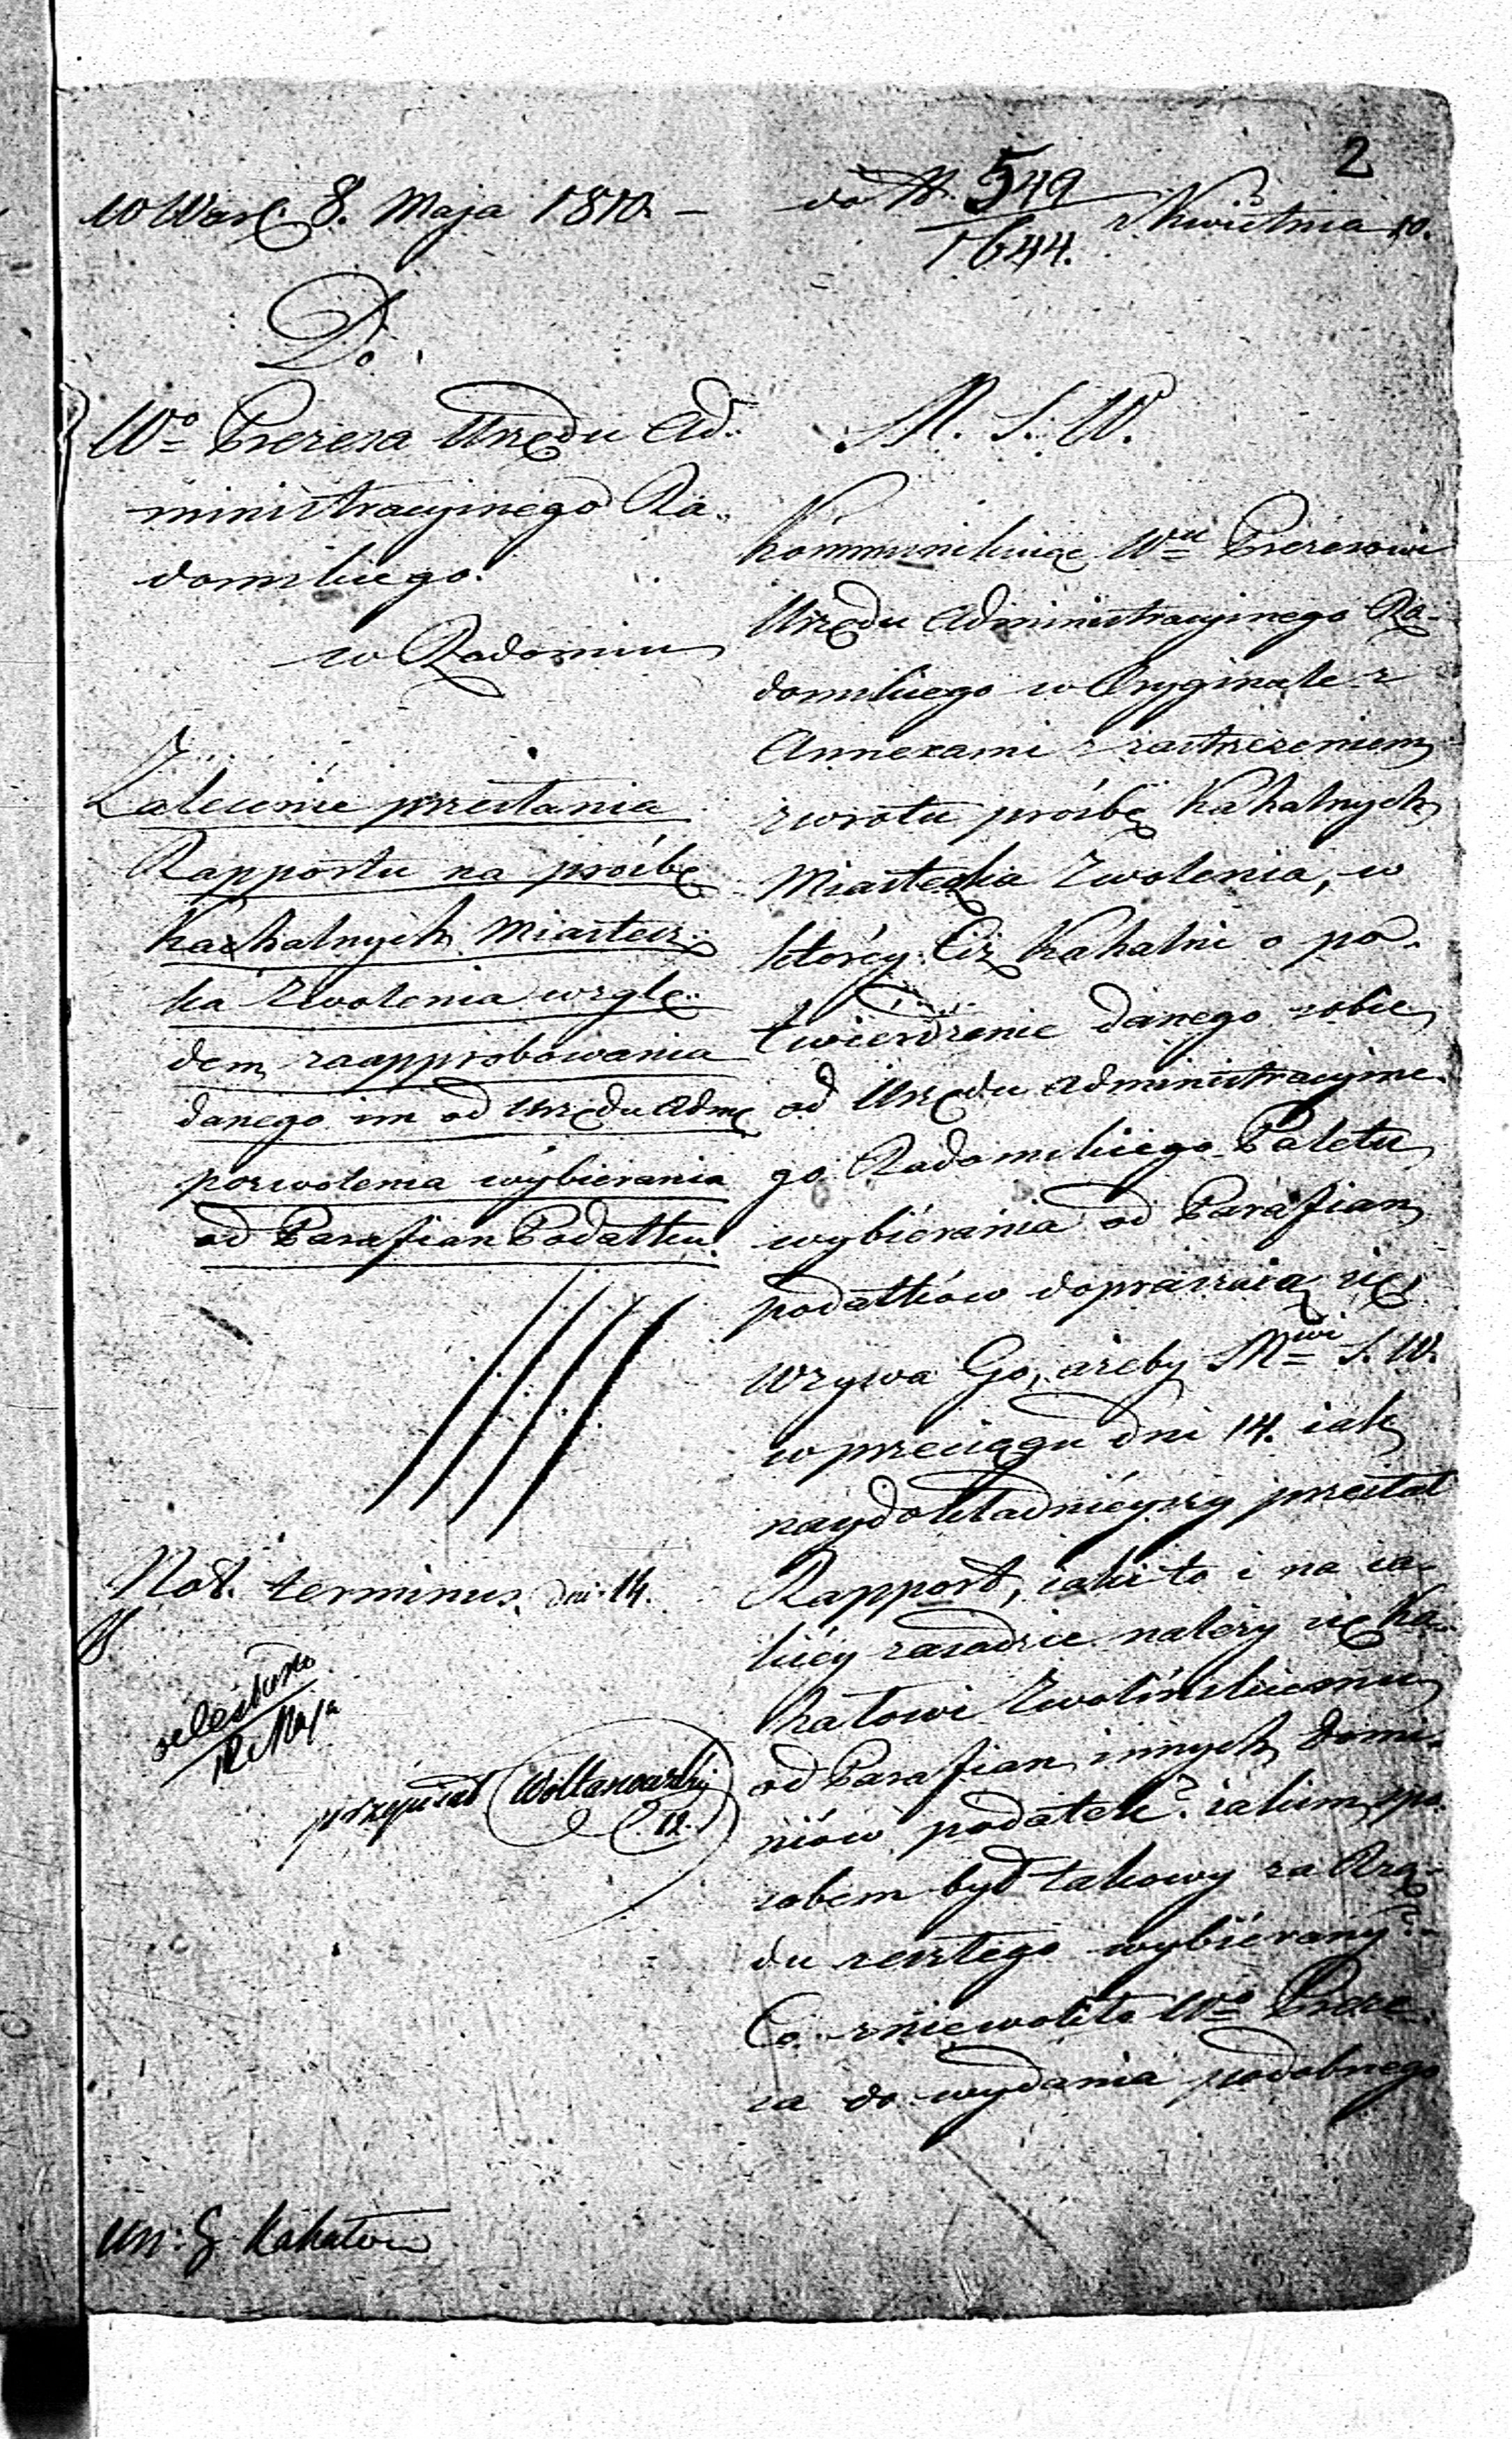 2
w Wars. 8. Maja 1810. –
do N. 549
1644. z Kwietnia 10.
Do
Wº Prezesa Urzędu Ad-
ministracyinego Ra-
domskiego.
w Radomiu
Zalecenie przesłania
Rapportu na prośbę
Kahalnych Miastecz-
ka Zwolenia wzglę-
dem zaapprobowania
danego im od Urzędu Adm
pozwolenia wybierania
od Parafian Podatku.
Not. terminus dni 14.
przepisał Woltanowski
12.
Un: G. Kahałów
M. S. W.
Kommunikuiąc Wmu Prezesowi
Urzędu Administracyinego Ra-
domskiego w Oryginale z
Annexami z zastrzeżeniem
zwrotu prośbę Kahalnych
Miasteczka Zwolenia, w
któréy Ciż Kahalni o po-
twierdzenie danego sobie
od Urzędu Administracyine-
go Radomskiego Patetu
wybiérania od Parafian
podatków dopraszaią się
wzywa Go, ażeby Mwi S. W.
w przeciągu dni 14. iak
naydokładniéyszy przesłał
Rapport, iaki to i na ia-
kiéy zasadzie należy się Ka-
hałowi Zwolińskiemu
od Parafian innych Domi-
niów podatek? iakim spo-
sobem był takowy za Rzą-
du zeszłego wybiérany?
Co zniewoliło Wº Preze-
sa do wydania podobnego